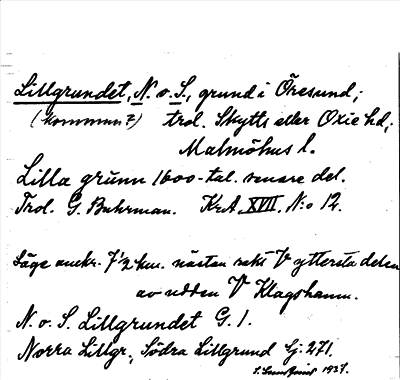 Lillgrundet, N. o. S., grund i Öresund;
(kommun?) trol. Skytts eller Oxie hd,
Malmöhus l.
Lilla grünn 1600-tal. senare del.
Trol. G. Buhrman. KrA. XVII. N:o 12.
Läge omkr. 7 1/2 km. nästan rakt V yttersta delen
av udden V Klagshamn.
N. o. S. Lillgrundet G. 1.
Norra Lillgr., Södra Lillgrund Gj: 271.
1937.